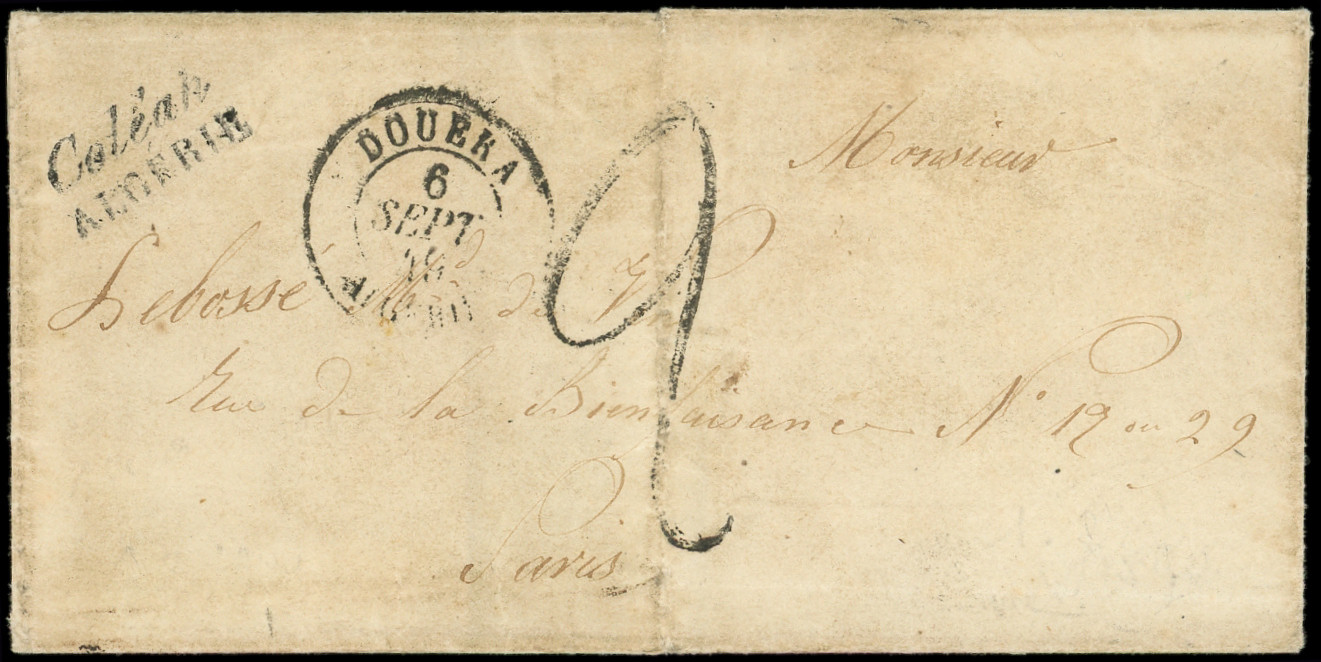 Coléah
ALGÉRIE
DOUÉRA
6
SEPT
ALGÉRIE
2
Monsieur
Lebossé Md de
Rue de la Bienfaisance N° 19 ou 29
Paris